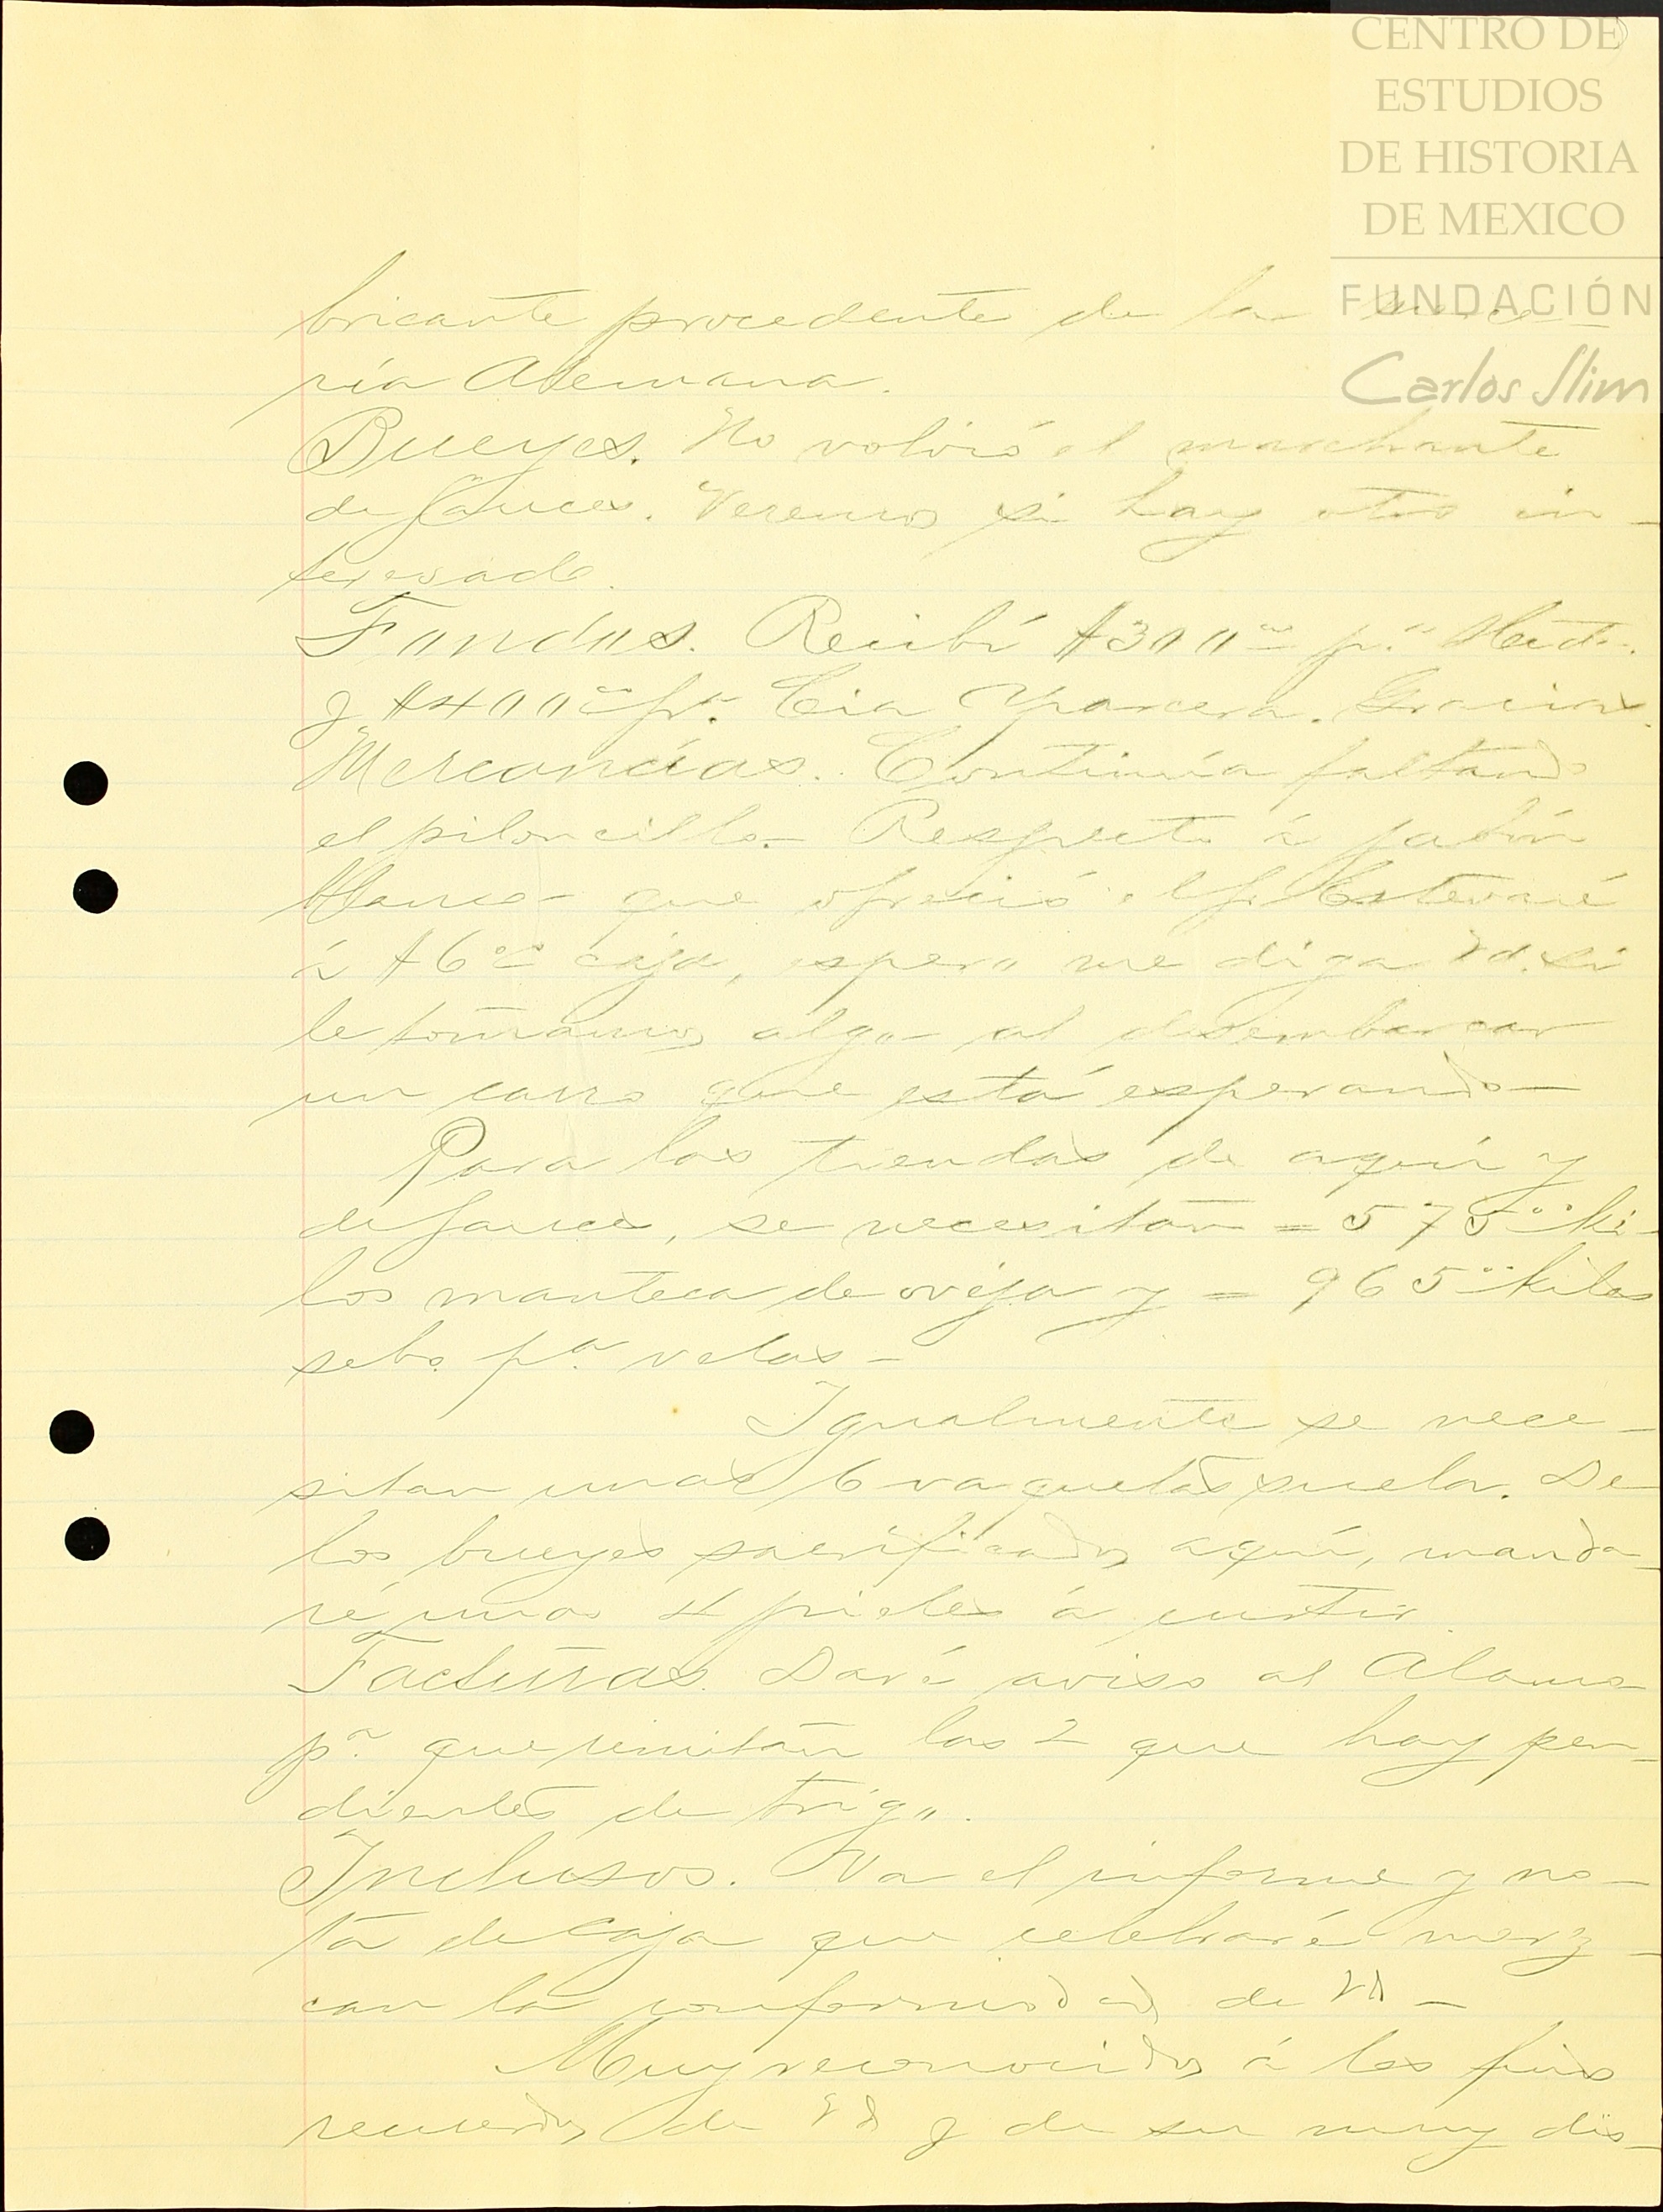 CENTRO DE
ESTUDIOS
DE HISTORIA
DE MEXICO
FUNDACIÓN
Carlos Slim
bricante procedente de la
ría Alemana.
Bueyes. No volvió el marchante
de Sauces. Veremos si hay otro in-
teresado.
Fondos. Recibí $300.00 pr.
y $400.00 pr. Cia Gracias.
Mercancías. Continúa faltando
el piloncillo- Respecto á jabón
blanco- que ofreció el Sr.
á $6.00 caja, espero me diga Vd. si
le tomamos algo al desembarcar
un carro que está esperando-
Para las tiendas de aquí y
de Sauces, se necesitan = 575.00 ki-
los manteca de oveja y = 965.00 kilos
sebo pa. velas-
Igualmente se nece-
sitan unas 6 vaquetas suela. De
los bueyes sacrificados aquí, manda-
ré unas 4 pieles á curtir.
Facturas. Daré aviso al Alamo
pa. que remitan las 2 que hay pen-
dientes de trigo.
Inclusos. Va el informe y no-
ta de caja que celebraré merez-
can la conformidad de Vd-
Muy reconocidos á los finos
recuerdos de Vd y de su muy dis-